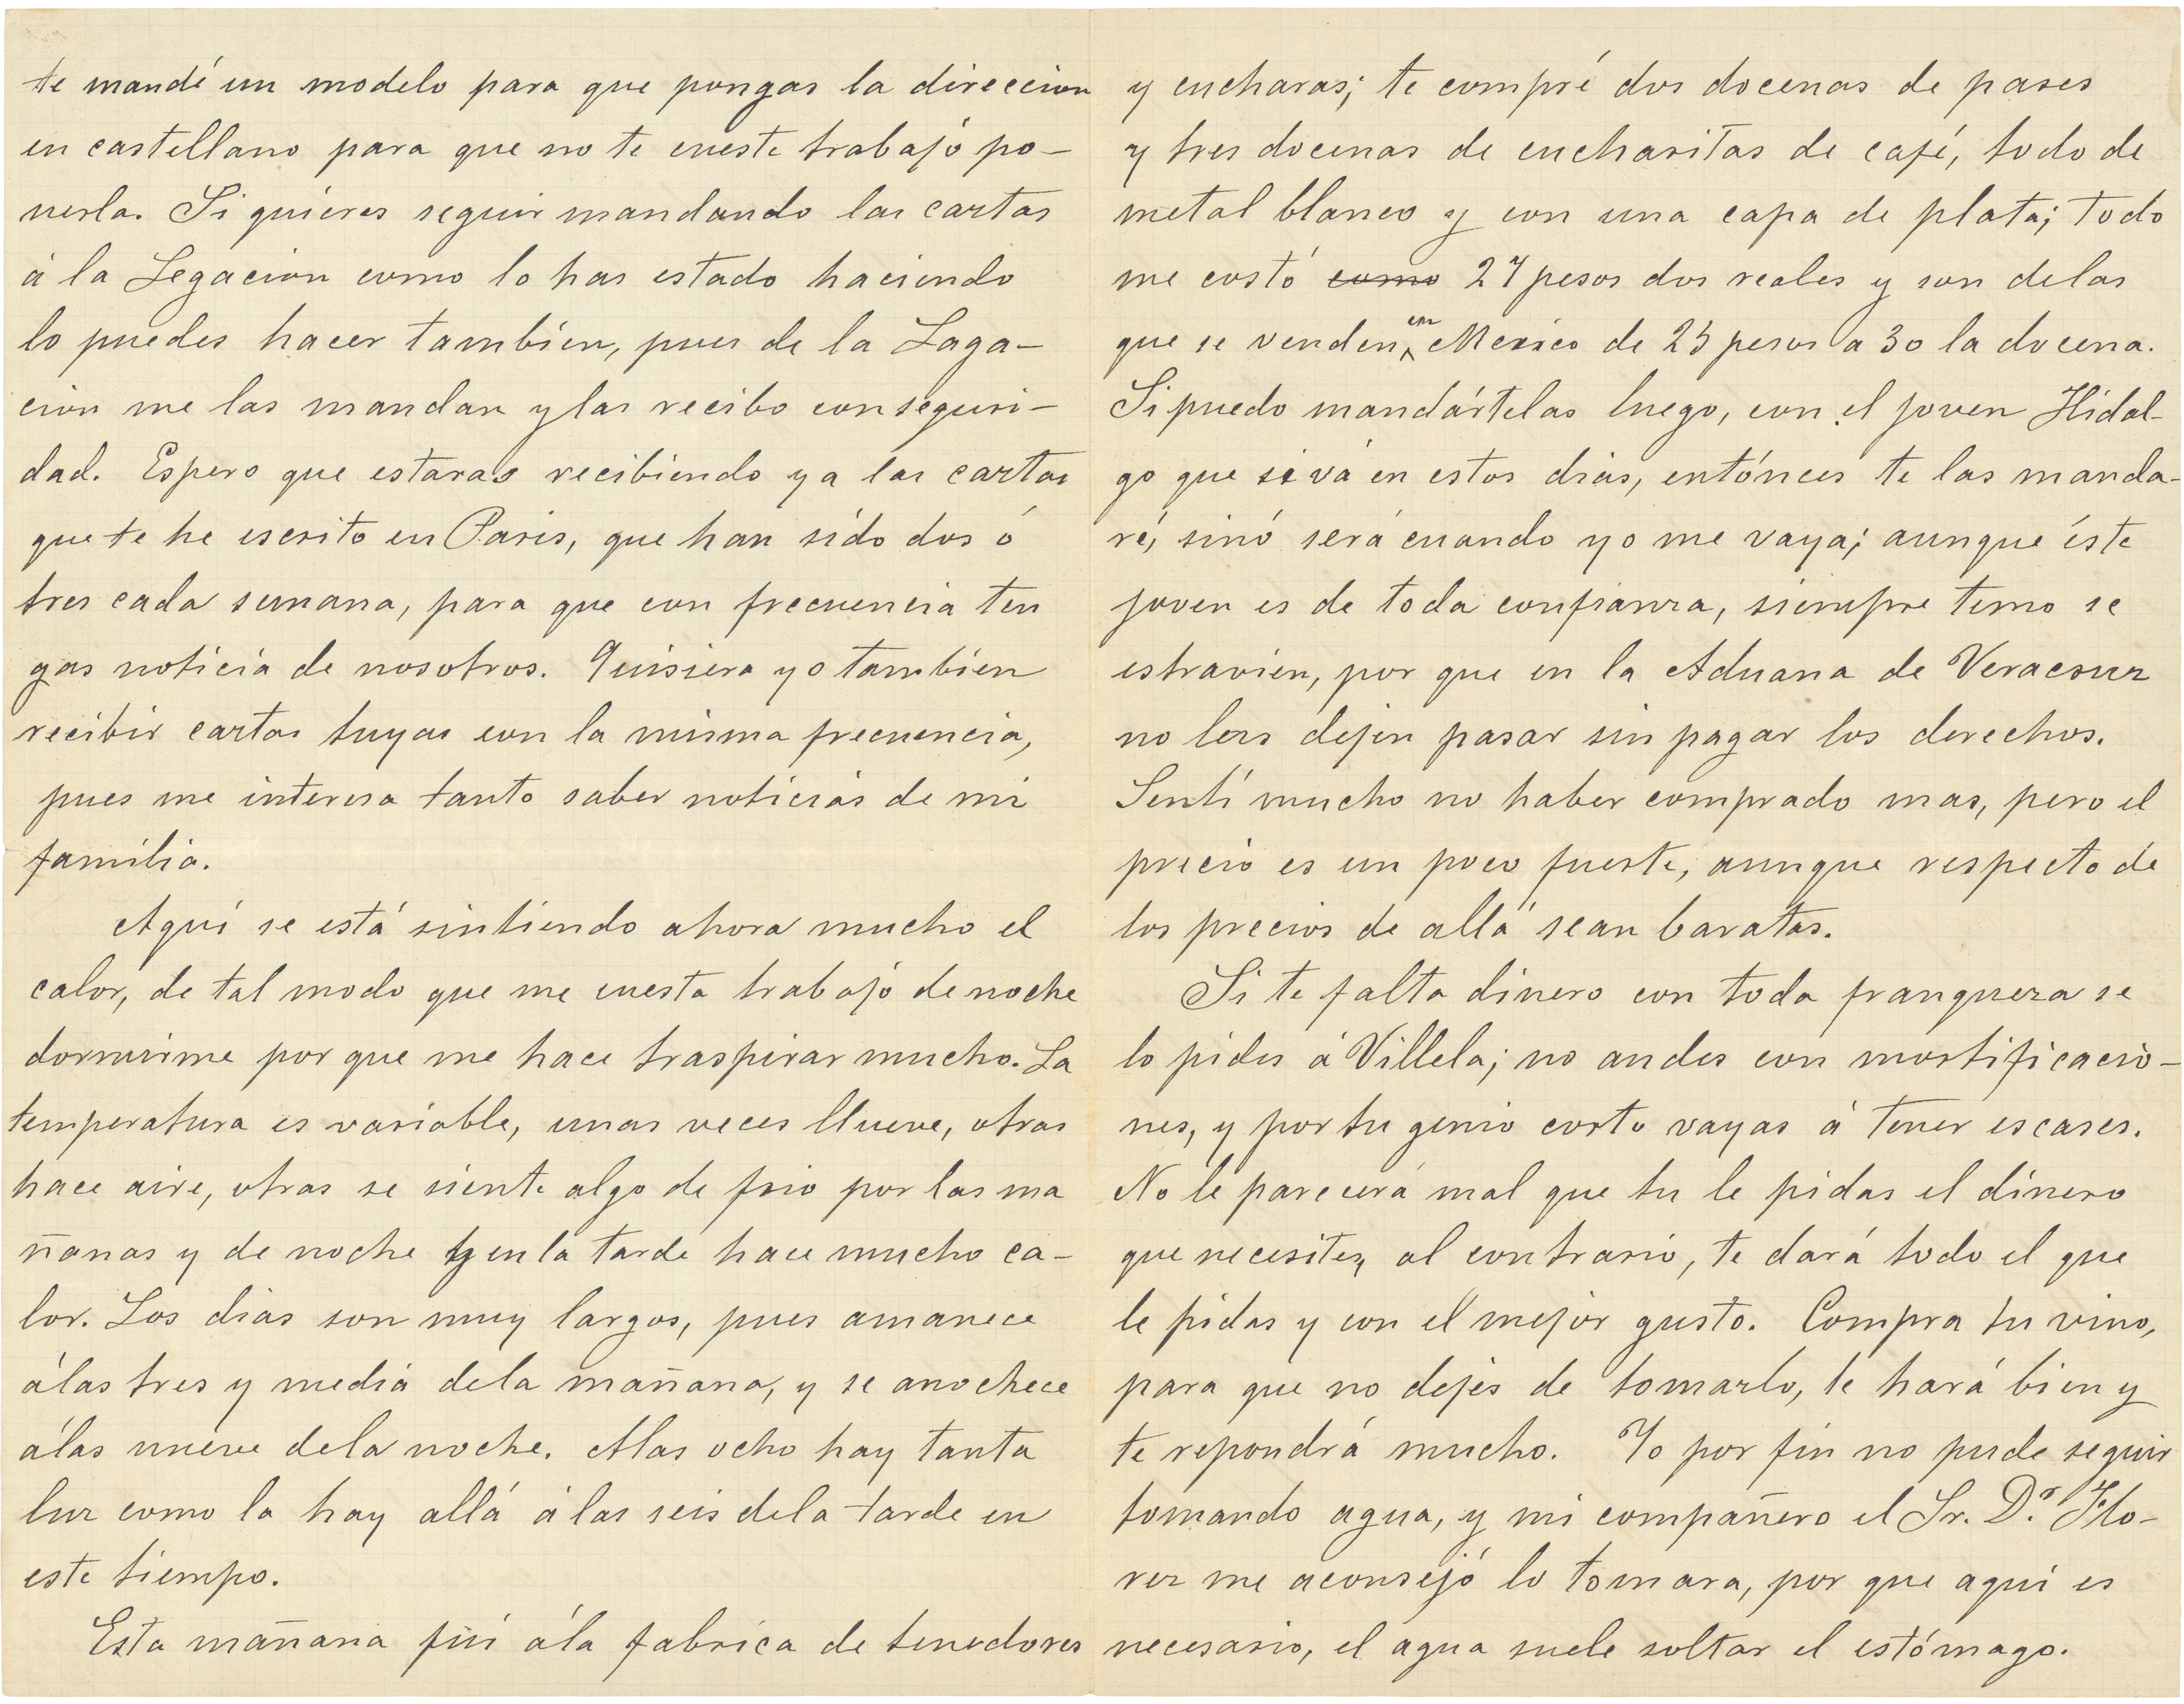 te mandé un modelo para que pongas la direccion
en castellano para que no te cueste trabajo po-
nerla. Si quieres seguir mandando las cartas
á la Legacion como lo has estado haciendo
lo puedes hacer tambien, pues de la Laga-
cion me las mandan y las recibo con seguri-
dad. Espero que estaras recibiendo ya las cartas
que te he escrito en Paris, que han sido dos ó
tres cada semana, para que con frecuencia ten
gas noticia de nosotros. Quisiera yo tambien
recibir cartas tuyas con la misma frecuencia,
pues me interesa tanto saber noticias de mi
familia.
Aquí se está sintiendo ahora mucho el
calor, de tal modo que me cuesta trabajo de noche
dormirme por que me hace traspirar mucho. La
temperatura es variable, unas veces llueve, otras
hace aire, otras se siente algo de frio por las ma
ñanas y de noche y en la tarde hace mucho ca-
lor. Los dias son muy largos, pues amanece
á las tres y media de la mañana, y se anochece
á las nueve de la noche. A las ocho hay tanta
luz como la hay allá á las seis de la tarde en
este tiempo.
Esta mañana fuí á la fabrica de tenedores
y cucharas; te compré dos docenas de pases
y tres docenas de cucharitas de café, todo de
metal blanco y con una capa de plata; todo
me costó como 27 pesos dos reales y son de las
que se venden en Mexico de 25 pesos a 30 la docena.
Si puedo mandártelas luego, con el joven Hidal-
go que se vá en estos dias, entónces te las manda-
ré, sinó será cuando yo me vaya; aunque éste
joven es de toda confianza, siempre temo se
estravien, por que en la Aduana de Veracruz
no las dejen pasar sin pagar los derechos.
Sentí mucho no haber comprado mas, pero el
precio es un poco fuerte, aunque respecto de
los precios de allá sean baratas.
Si te falta dinero con toda franqueza se
lo pides á Villela; no andes con mortificacio-
nes, y por tu genio corto vayas á tener escases.
No le parecerá mal que tu le pidas el dinero
que necesites, al contrario, te dará todo el que
le pidas y con el mejor gusto. Compra tu vino,
para que no dejes de tomarlo, te hará bien y
te repondrá mucho. Yo por fin no pude seguir
tomando agua, y mi compañero el Sr. Dr. Flo-
rez me aconsejó lo tomara, por que aquí es
necesario, el agua suele soltar el estómago.